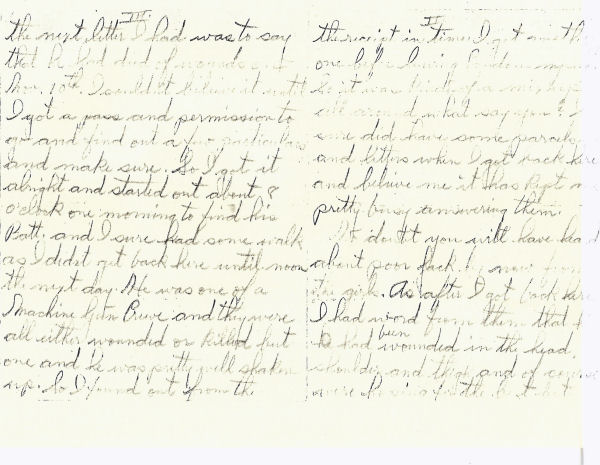 III
the next letter I had was to say
that he had died of wounds
Nov. 10th I couldn't believe it until
I got a pass and permission to
go and find out a few particulars
and make sure. So I got it
alright and started out about 8
o'clock one morning to find his
Batt. and I sure had some walk
as I didnt get back here until noon
the next day. He was one of a
Machine Gun Crewe and they were
all either wounded or killed but
one and he was pretty well shaken
up. So I found out from the
II
the receipt in time. I got
one before leaving
So it was kind of a
all around what say you? I
sure did have some parcels
and letters when I got back here
and believe me it has kept me
pretty busy answering them.
No doubt you will have heard
about poor Jack by now from
the girls. As after I got back here
I had word from them that
he had been wounded in the head,
shoulder and thigh and of course
were hoping for the best but